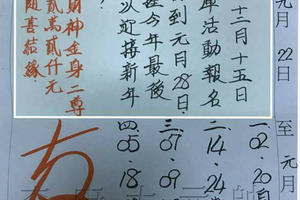 元月22日至元月
十二月十五日
庫活動報名
到元月28日
今年最後
迎接新年
財神金身二尊
貳萬貳仟元
隨喜結緣
一.02.20
二.14.24
三.07.09
四.05.18